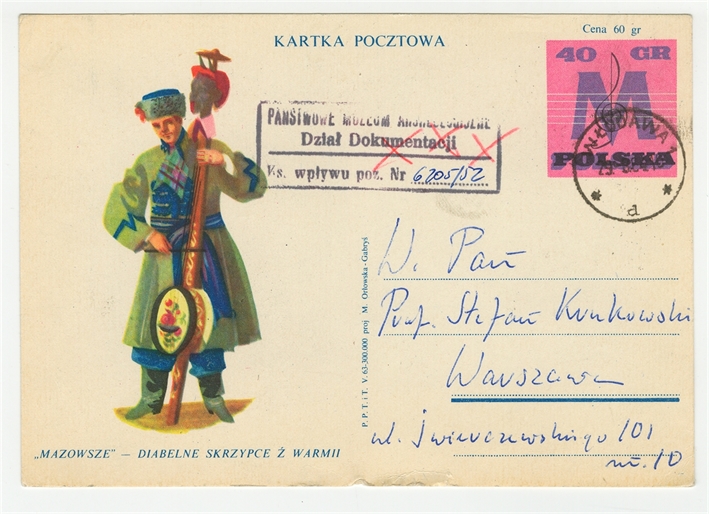 Cena 60 gr
KARTKA POCZTOWA
40 GR
M
POLSKA
PAŃSTWOWE MUZEUM ARCHEOLOGICZNE
Dział Dokumentacji
Ks. wpływu poz. Nr 6205/52
WŁODAWA
d
W. Pan
Prof. Stefan Krukowski
Warszawa
ul. Świerczewskiego 101
m. 10
P.P.T. i T. V. 63-300.000 proj M. Orłowska-Gabryś
„MAZOWSZE” — DIABELNE SKRZYPCE Z WARMII